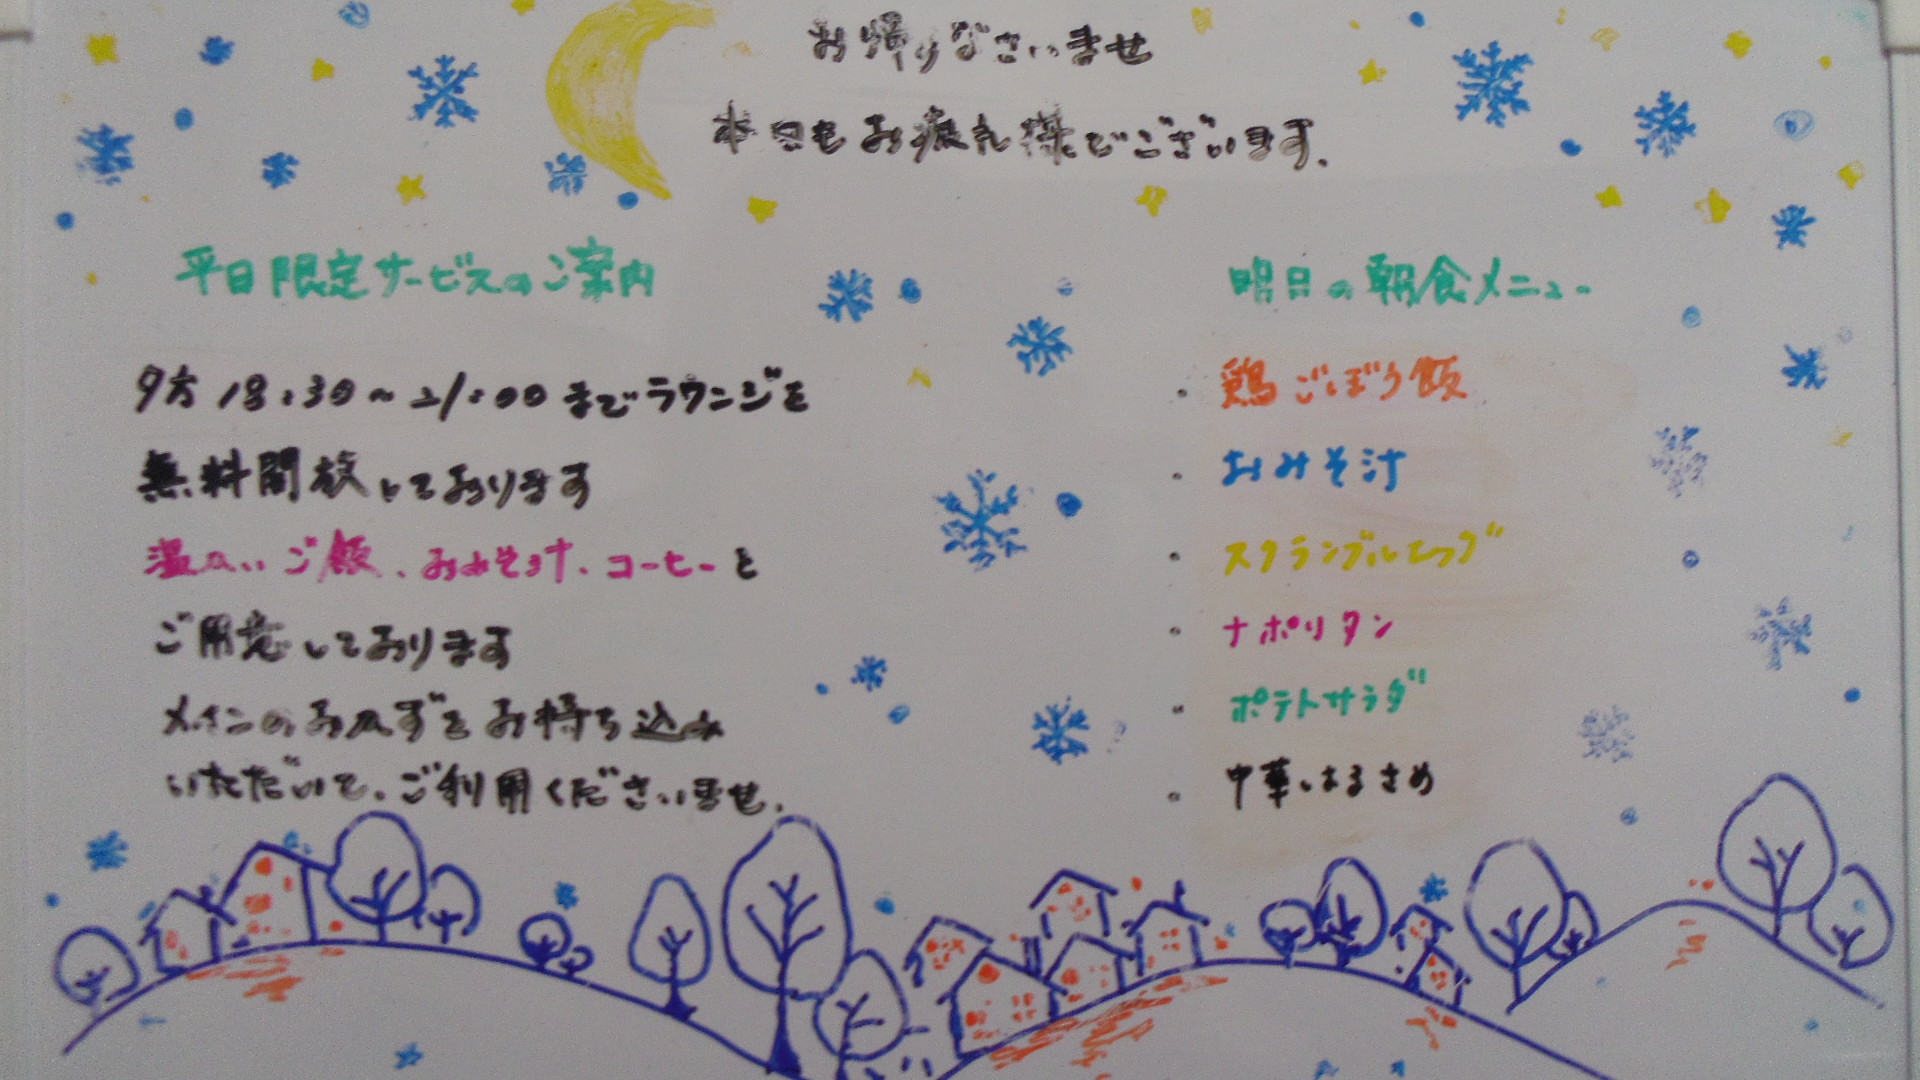 お帰りなさいませ
本日もお疲れ様でございます.
平日限定サービスのご案内
夕方 18:30~21:00までラウンジを
無料開放しております
温かいご飯、おみそ汁、コーヒーを
ご用意しております
メインのおかずをお持ち込み
いただいて、ご利用くださいませ.
明日の朝食メニュー
・鶏ごぼう飯
・おみそ汁
・スクランブルエッグ
・ナポリタン
・ポテトサラダ
・中華はるさめ